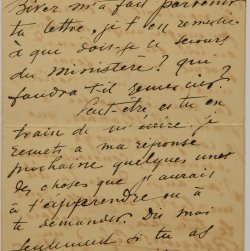 Biver m'a fait parvenir
ta lettre. je t'en remercie
à qui dois-je ce secours
du ministère ? qui
faudra t'il remercier ?
Peut-être es tu en
train de m'écrire. je
remets a ma réponse
prochaine quelques unes
des choses que j'aurais
à t'apprendre ou à
te demander. Dis moi
seulement si tu as